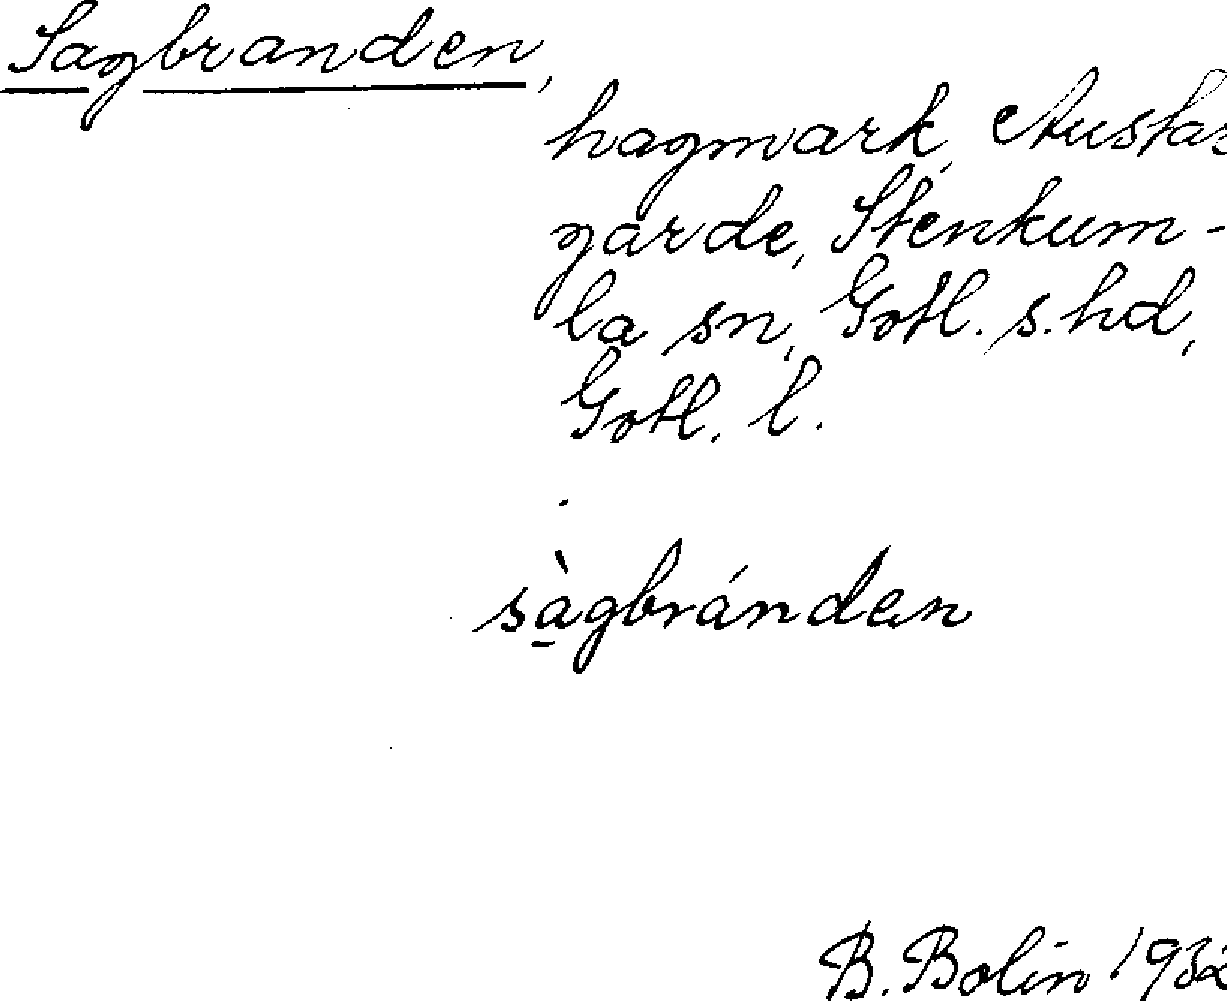 Sagbranden,
hagmark, Austar
garde, Stenkum-
la sn, Gotl. s. hd,
Gotl. l.
sà̱gbránden
B. Bolin 1932